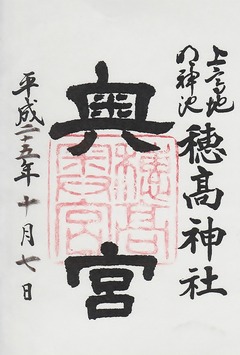 上高地
明神池
穂髙神社
奥宮
穂髙
奥宮
平成二十五年十月七日